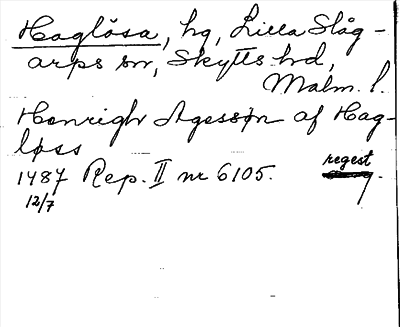 Haglösa, hg, Lilla Slåg-
arps sn, Skytts hd,
Malm. l.
Henrigh Agessøn af Hag-
løss
1487 Rep. II nr 6105. regest
12/7